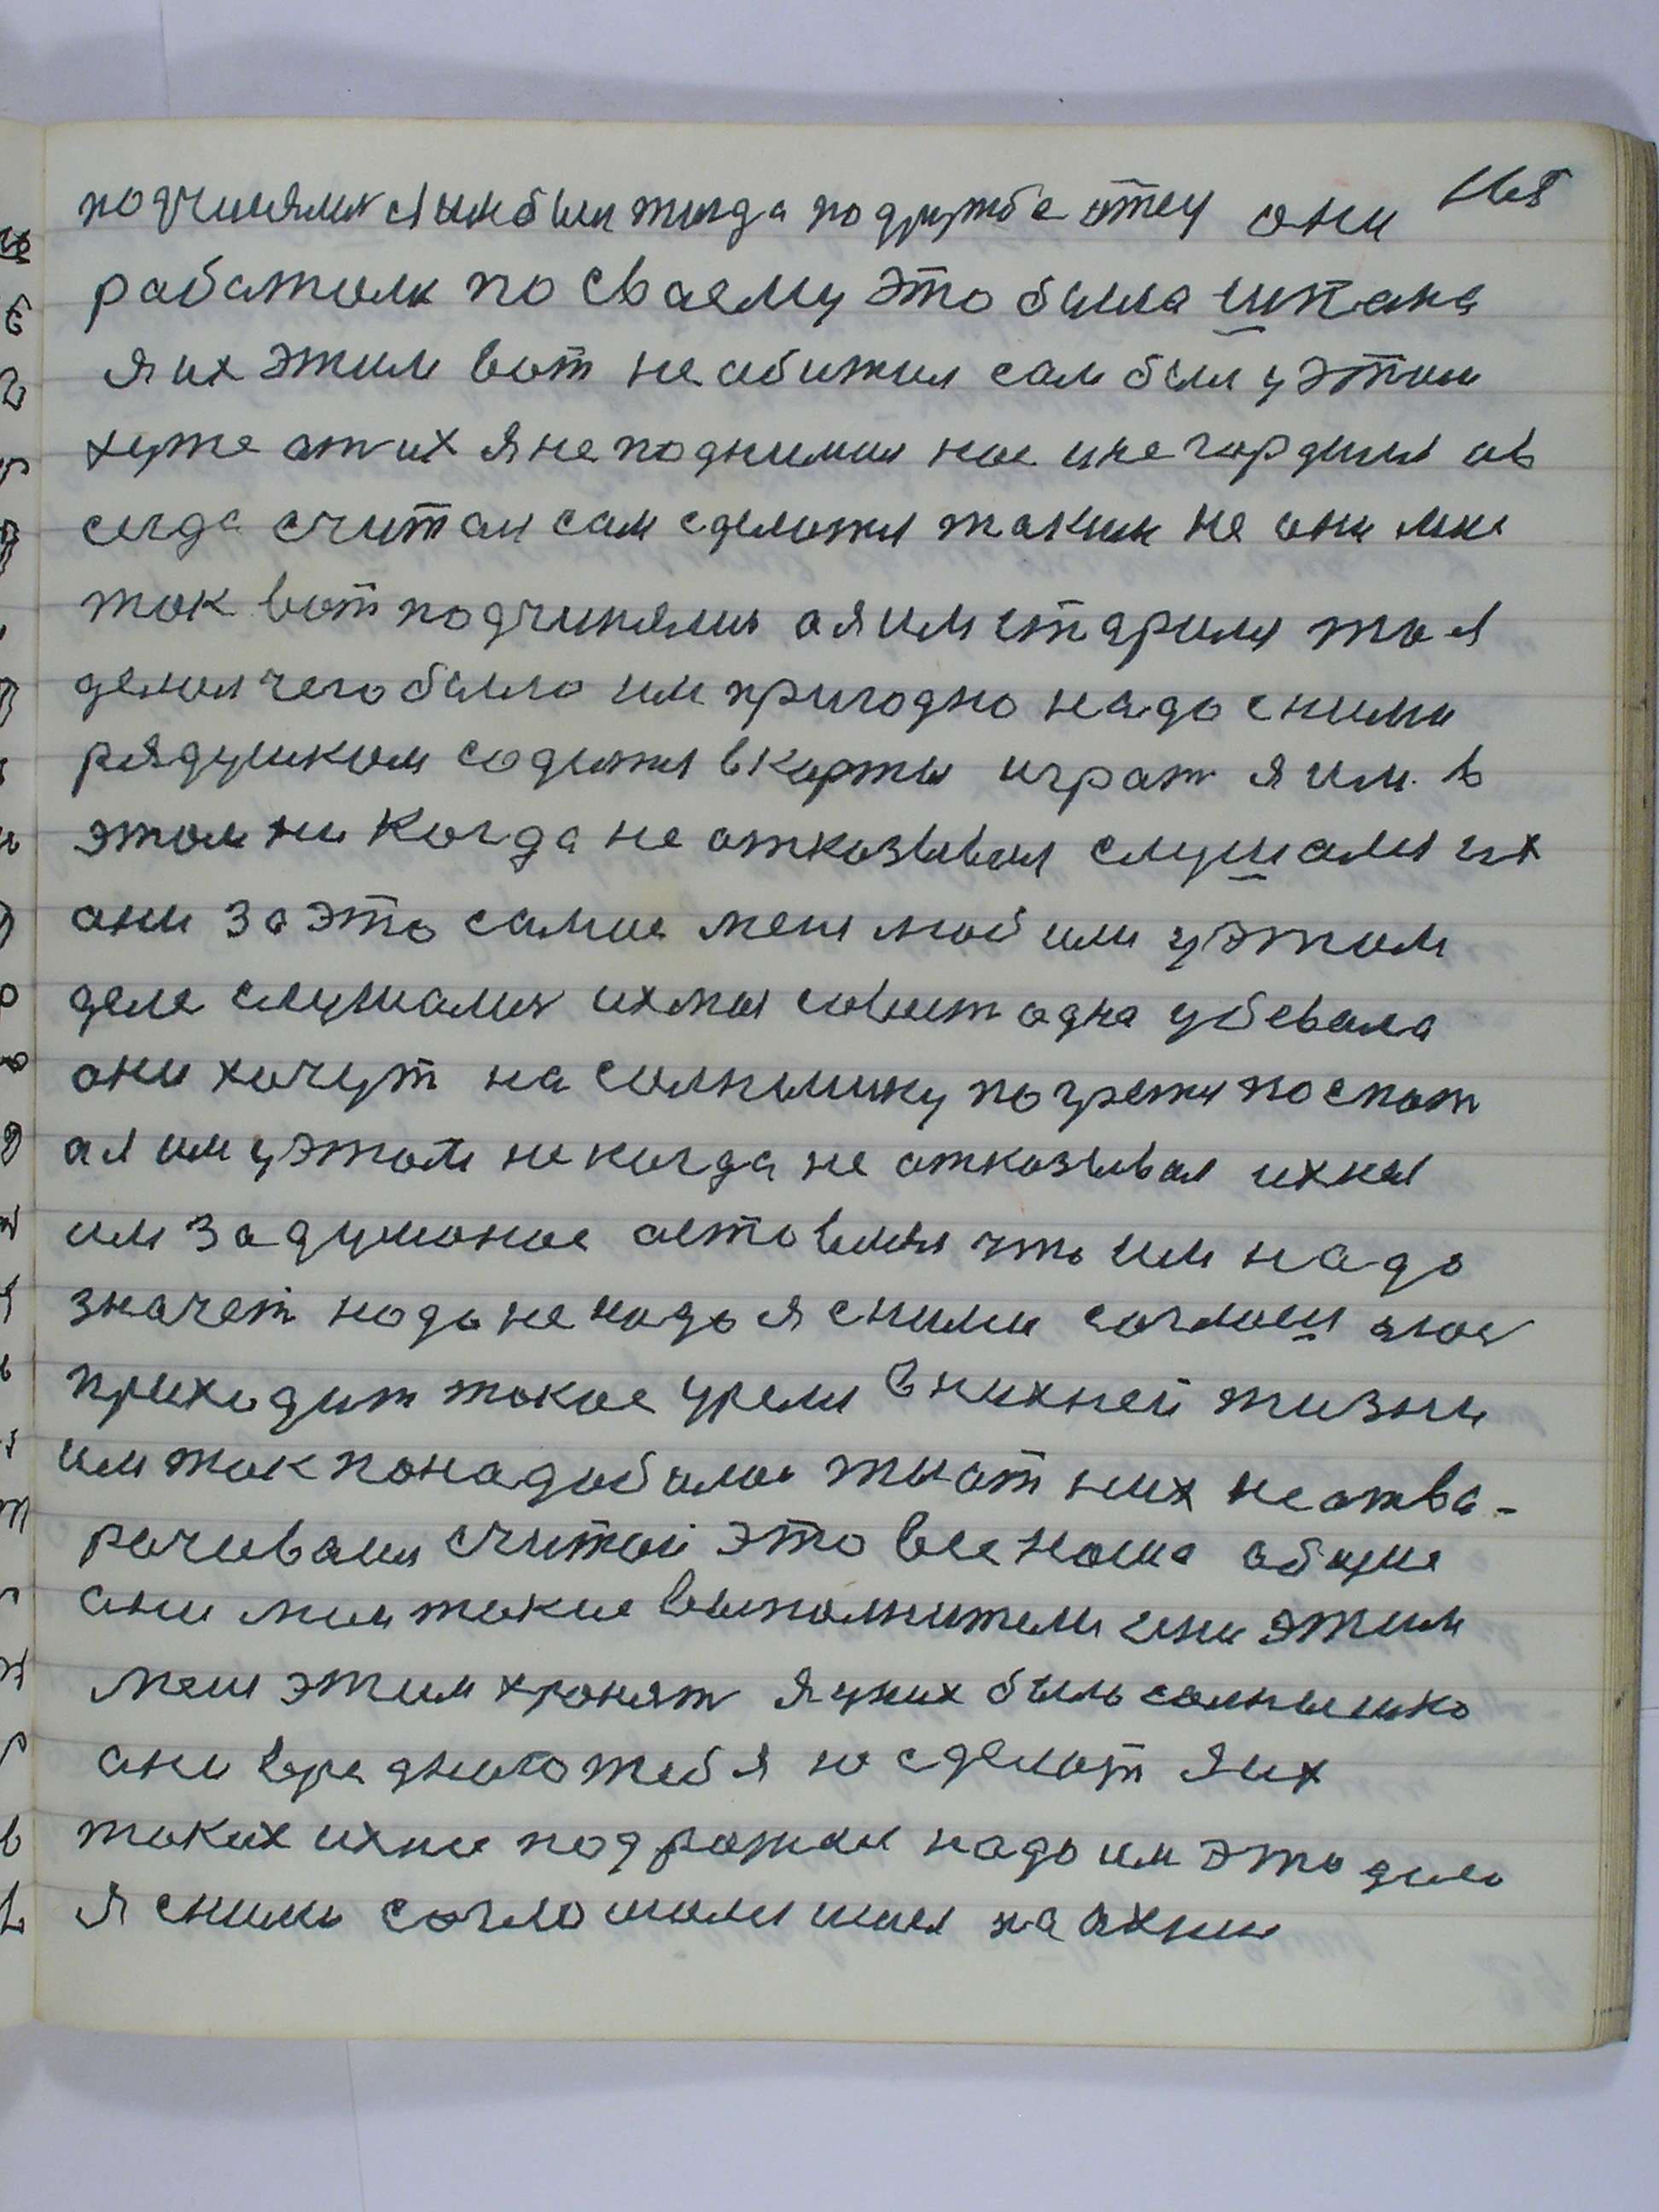 подчинялись я им был тогда по дружбе отец они
работали по сваему это была шпана
я их этим вот не абижал сам был у этим
хуже от их я не поднимал нос и не гордился ав
сегда считал сам сделатся таким не они мне
так вот подчинялися а я им старился то я
делал чего было им пригодно надо с ними
рядушком садится в карты играт я им в
этом ни когда не отказывал слушался их
они за это самое меня любили у этом
деле слушались ихмы совит одна убевала
они хочут на солнышку погретя поспат
а я им у этом некогда не отказывал ихня
им задуманое астовлял что им надо
значет надо не надо я с ними соглаш аюсь
приходит такое уремя В нихней жизни
им так понадобилось ты от них не атва-
рачивался считай это все наша общие
они мои такие выполнители они этим
меня этим хранят я у них был солнышко
ани вредного тибя не сделают я их
таких ихние подражал надо им это дело
я с ними соглошался шел на ихнии